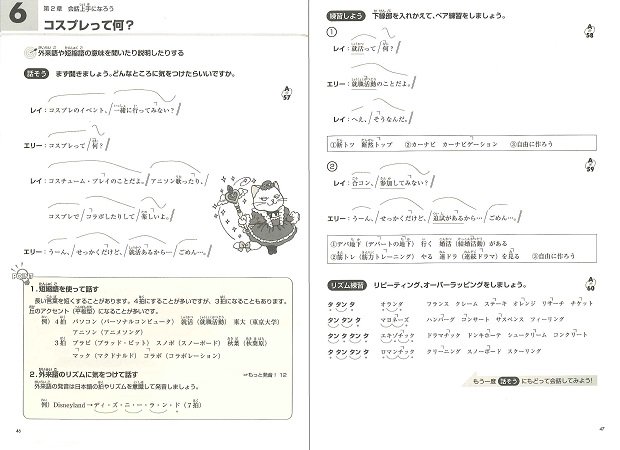 6
第2章 会話上手になろう
コスプレって何？
外来語や短縮語の意味を聞いたり説明したりする
話そう まず聞きましょう。どんなところに気をつけたらいいですか。
A
57
レイ：コスプレのイベント、/一緒に行ってみない？/
エリー：コスプレって/何？/
レイ：コスチューム・プレイのことだよ。/アニソン歌ったり、/
コスプレで/コラボしたりして/楽しいよ。/
エリー：うーん、/せっかくだけど、/就活あるから…/ごめん…。/
1. 短縮語を使って話す
長い言葉を短くすることがあります。4拍にすることが多いですが、3拍になることもあります。
丘のアクセント（平板型）になることが多いです。
例）4拍 パソコン（パーソナルコンピュータ） 就活（就職活動） 東大（東京大学）
アニソン（アニメソング）
3拍 ブラピ（ブラッド・ピット） スノボ（スノーボード） 秋葉（秋葉原）
マック（マクドナルド） コラボ（コラボレーション）
2. 外来語のリズムに気をつけて話す
⇒もっと発音！ 12
外来語の発音は日本語の拍やリズムを意識して発音しましょう。
例）Disneyland→ディ・ズ・ニ・ー・ラ・ン・ド（7拍）
46
練習しよう 下線部を入れかえて、ペア練習をしましょう。
A
58
①
レイ：就活って/何？/
エリー：就職活動のことだよ。
レイ：へえ、/そうなんだ。/
①断トツ 断然トップ ②カーナビ カーナビゲーション ③自由に作ろう
A
59
②
レイ：合コン、/参加してみない？/
エリー：うーん、/せっかくだけど、/追試があるから…/ごめん…。/
①デパ地下（デパートの地下）行く 婚活（結婚活動）がある
②筋トレ（筋力トレーニング）やる 連ドラ（連続ドラマ）を見る ③自由に作ろう
リズム練習 リピーティング、オーバーラッピングをしましょう。
A
60
タ タン タ オランダ フランス クレーム ステーキ オレンジ リサーチ チケット
タン タン タ マヨネーズ ハンバーグ コンサート サスペンス フィーリング
タ タン タン タ エキゾチック ドラマチック ドンキホーテ シュークリーム コンクリート
タ タン タン タ ロマンチック クリーニング スノーボード スクーリング
もう一度 話そう にもどって会話してみよう！
47